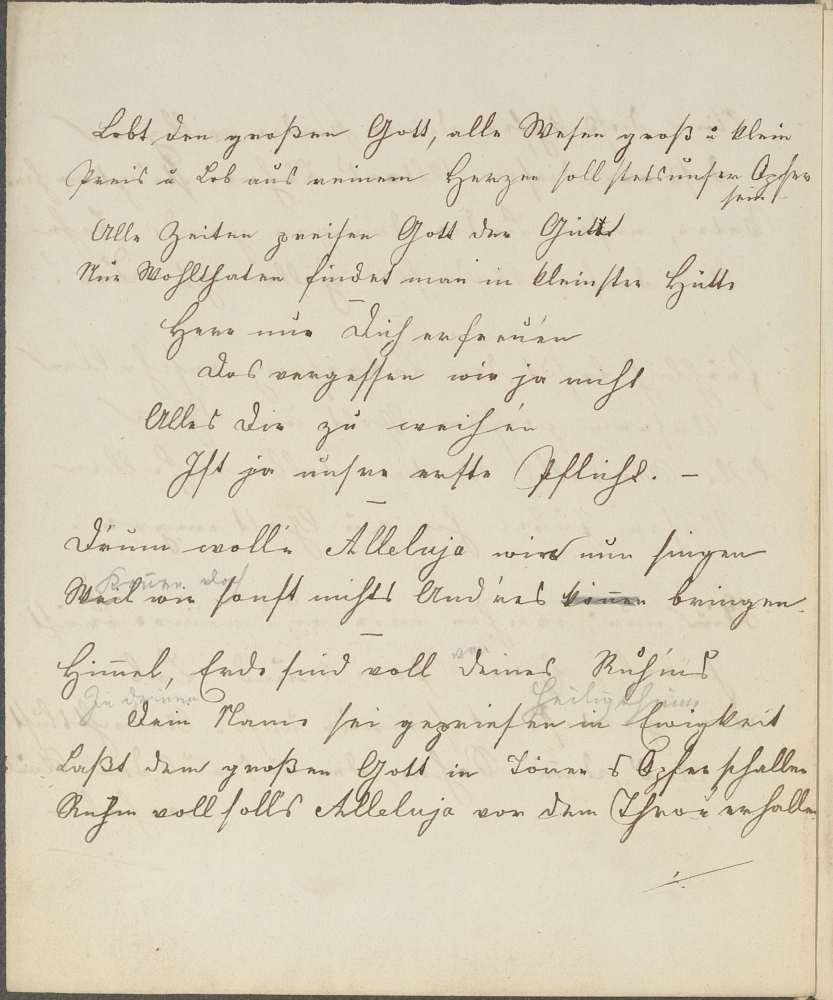 Lobt den großen Gott, alle Wesen groß u klein
Preis u Lob aus reinem Herzen soll stets unser Opfer
sein
Alle Zeiten preisen Gott der Güte
Nur Wohlthaten findet man in kleinster Hütte
Herr nur Dich erfreuen
Das vergessen wir ja nicht
Alles Dir zu weih'n
Ist ja unsre erste Pflicht. –
D'rum woll'n Alleluja wir nun singen
Können doch
Weil wir sonst nichts And'res können bringen.
Himmel, Erde sind voll deines Ruhm's
Zu deinem Heiligthum
Dein Name sei gepriesen in Ewigkeit
Laßt dem großen Gott in Tönen s Opfer schallen
Ruhm voll soll's Alleluja vor dem Thron erhallen